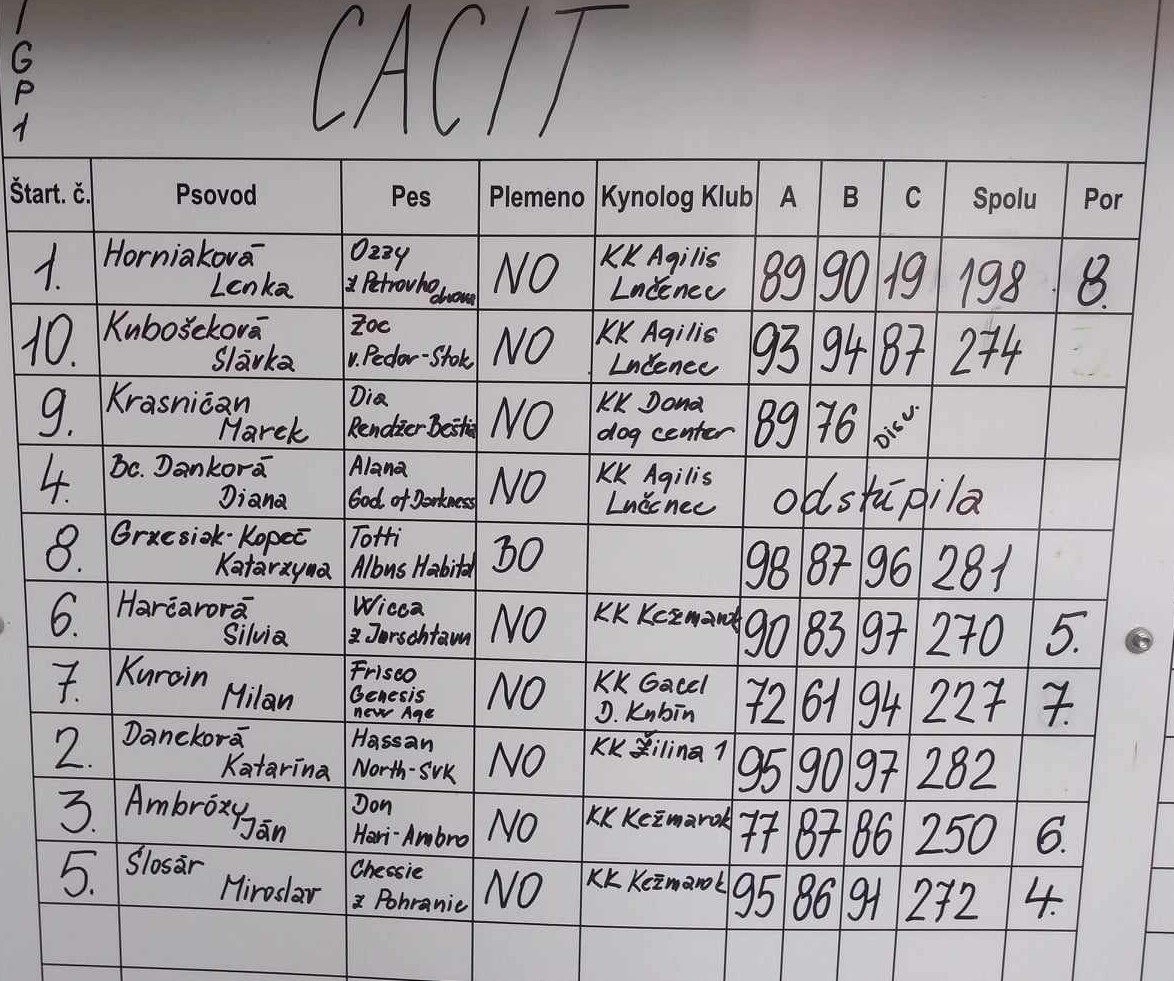 IGP1
CACIT
Štart. č. Psovod Pes Plemeno Kynolog Klub A B C Spolu Por
1. Horniaková Lenka Ozzy z Petrovho dvora NO KK Agilis Lučenec 89 90 19 198 8.
10. Kubošeková Slávka Zoc v.Pedor-Stok NO KK Agilis Lučenec 93 94 87 274
9. Krasničan Marek Dia Rendžer Beštia NO KK Dona dog center 89 76
4. Bc. Danková Diana Alana God of Darkness NO KK Agilis Lučenec odstúpila
8. Grzesiak-Kopeč Katarzyna Totti Albus Habital BO 98 87 96 281
6. Harčarorá Silvia Wicca NO KK Kežmarok 90 83 97 270 5.
7. Milan Frisco Genesis new Age NO KK Gacel D. Kubín 72 61 94 227 7.
2. Daneková Katarína Hassan North-SVK NO KK Žilina 1 95 90 97 282
3. Ambrózy Ján Don Hari-Ambro NO KK Kežmarok 77 87 86 250 6.
5. Šlosár Miroslav Chessie z Pohranic NO KK Kežmarok 95 86 91 272 4.